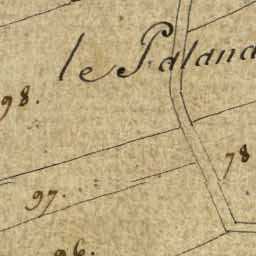 le Paland
98.
78
97.
96.